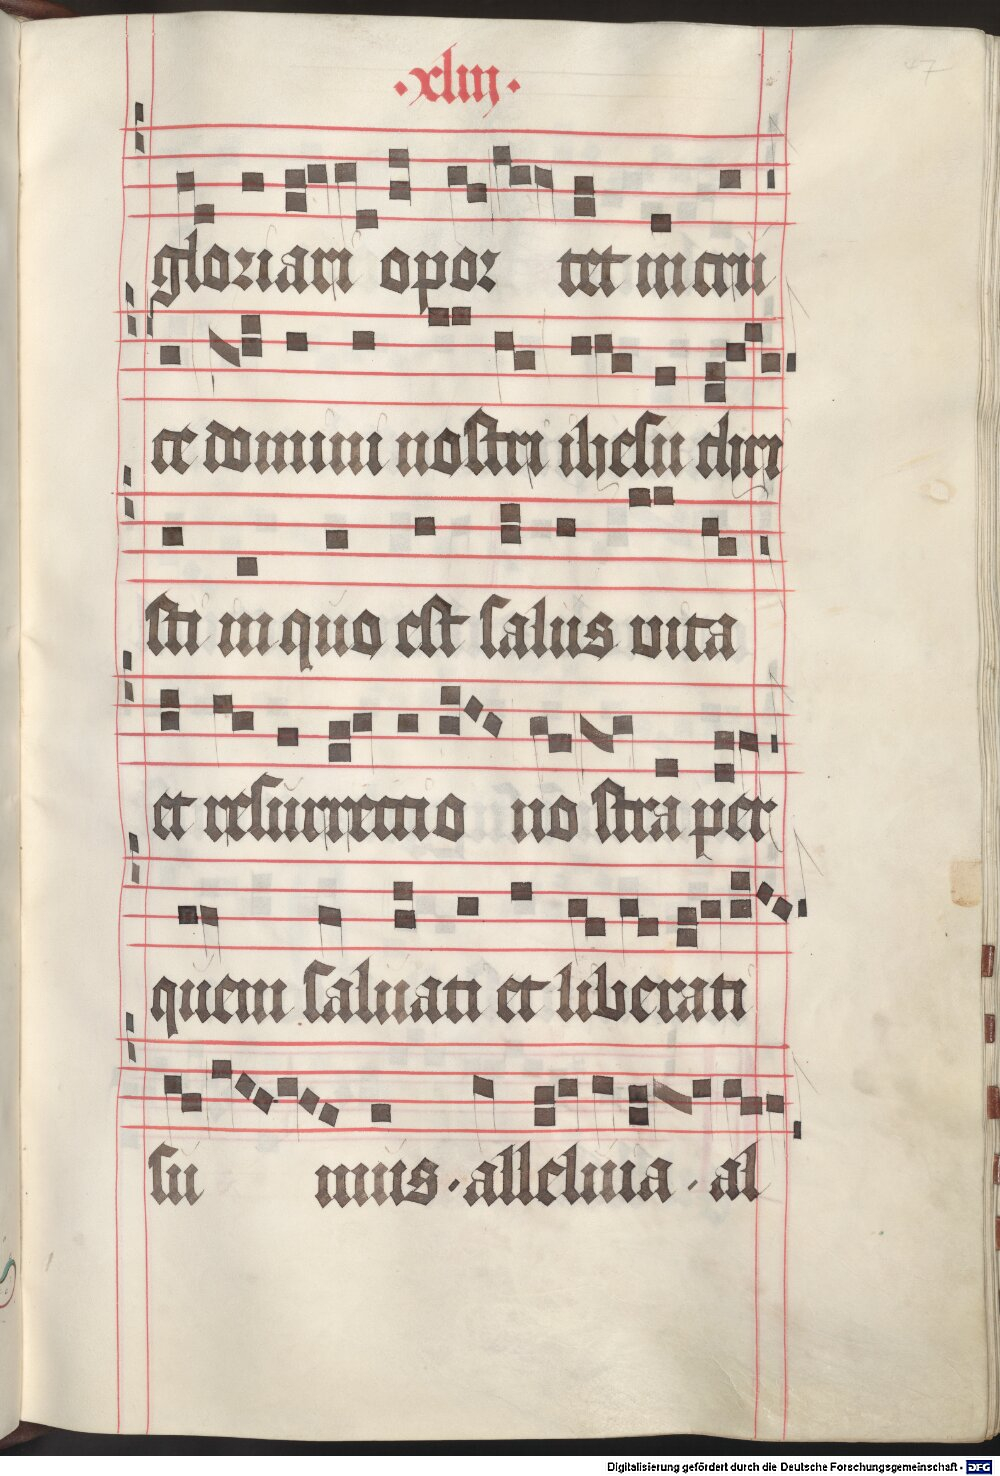 ·xliij·
47
gloriari opor tet in cru
ce domini nostri ihesu chri
sti in quo est salus uita
et resurrectio no stra per
quem saluati et liberati
su mus · alleluia · al
Digitalisierung gefördert durch die Deutsche Forschungsgemeinschaft - DFG